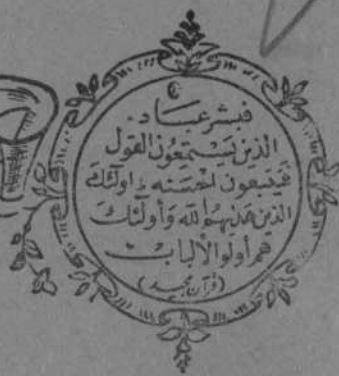 فبشر عباد
الذین یستمعون القول
فیتبعون احسنه اولئک
الذین هدٰىهم الله وأولئک
هم أولوا الألباب
(قرآن مجید)